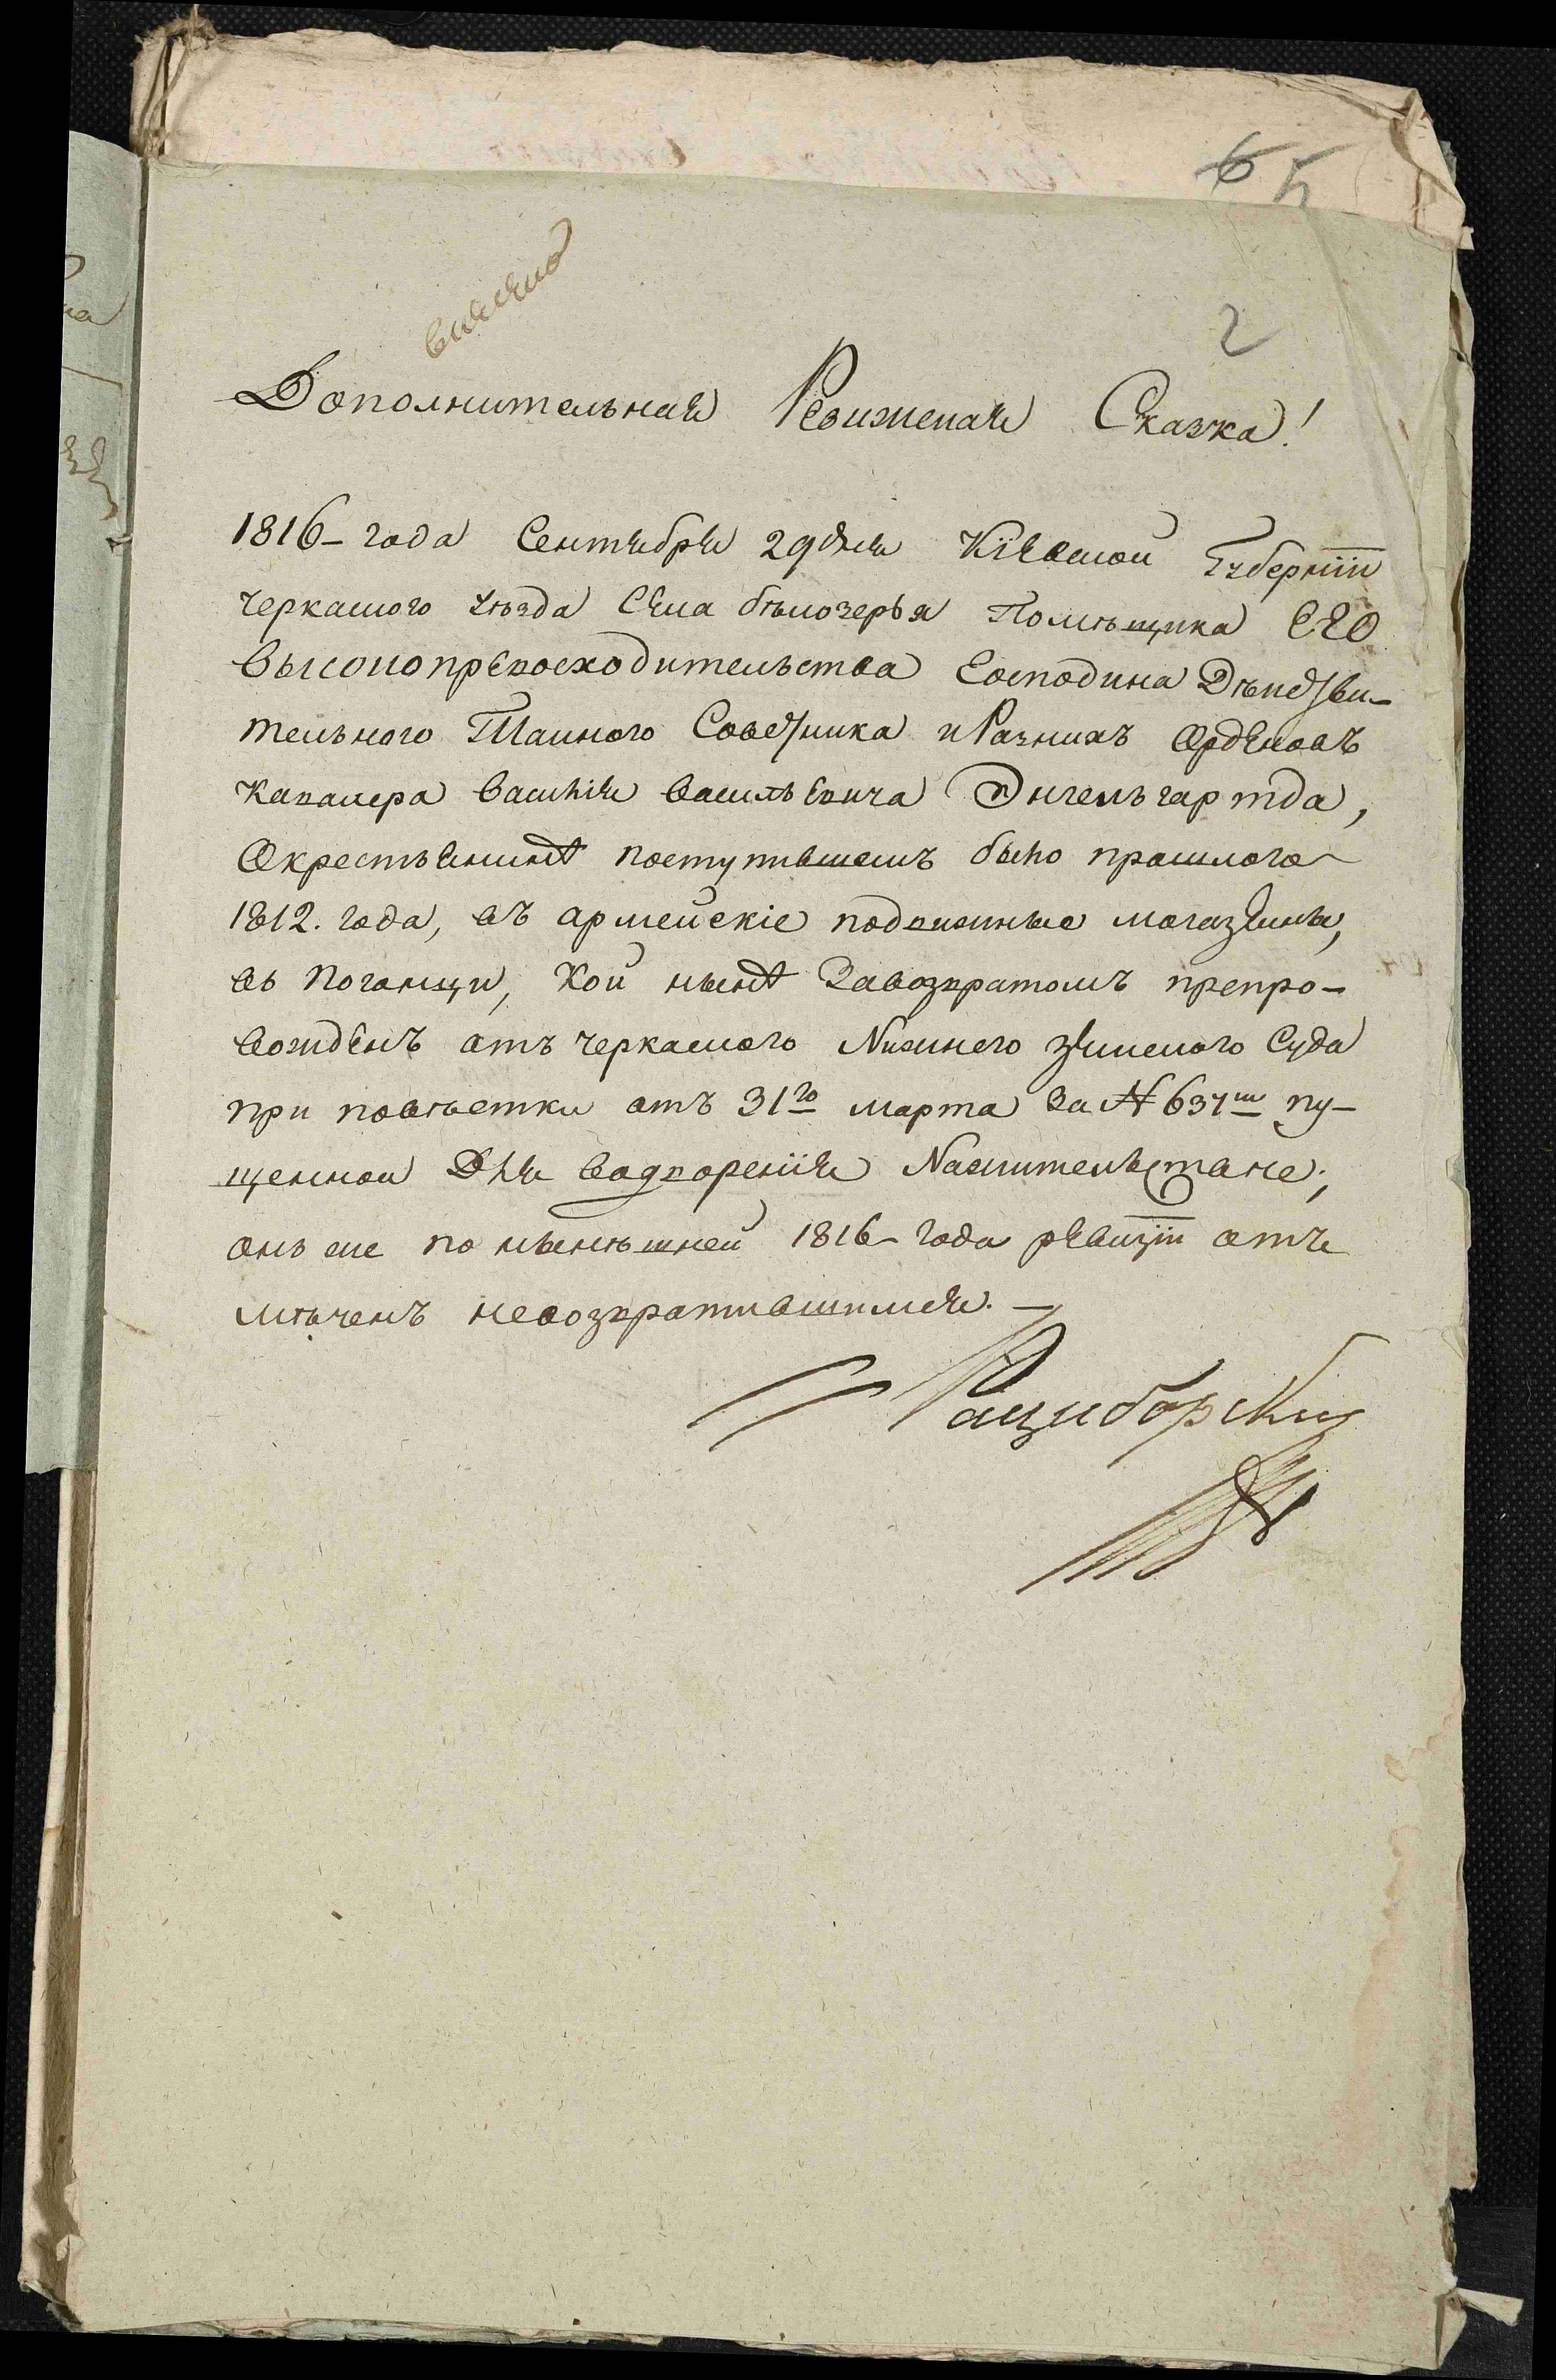 6 5
внесено
2
Дополнительная Ревижская Сказка!
1816-года Сентября 29 дня Кіевской Губерніи
Черкаского Уѣзда Села бѣлозерья Помѣщика Его
Высокопревосходительства Господина Дѣйстви-
тельного Тайного Советника и Разнихъ Орденовъ
Кавалера Василія Васильевича Энгельгартда,
Окрестьянинѣ поступившемъ было прошлого
1812. года, въ армейскіе подвижные магазейны,
въ погонщи, Кой нынѣ Завозвратомъ препро-
вожденъ отъ Черкаского Нижнего земского Суда
при повѣстки отъ 31го марта За №637м пу-
щенной Для Водворенія Нажительство;
онъ же по нынѣшней 1816-года ревизіи отъ
мѣченъ невозвратившимся. —
Рациборский